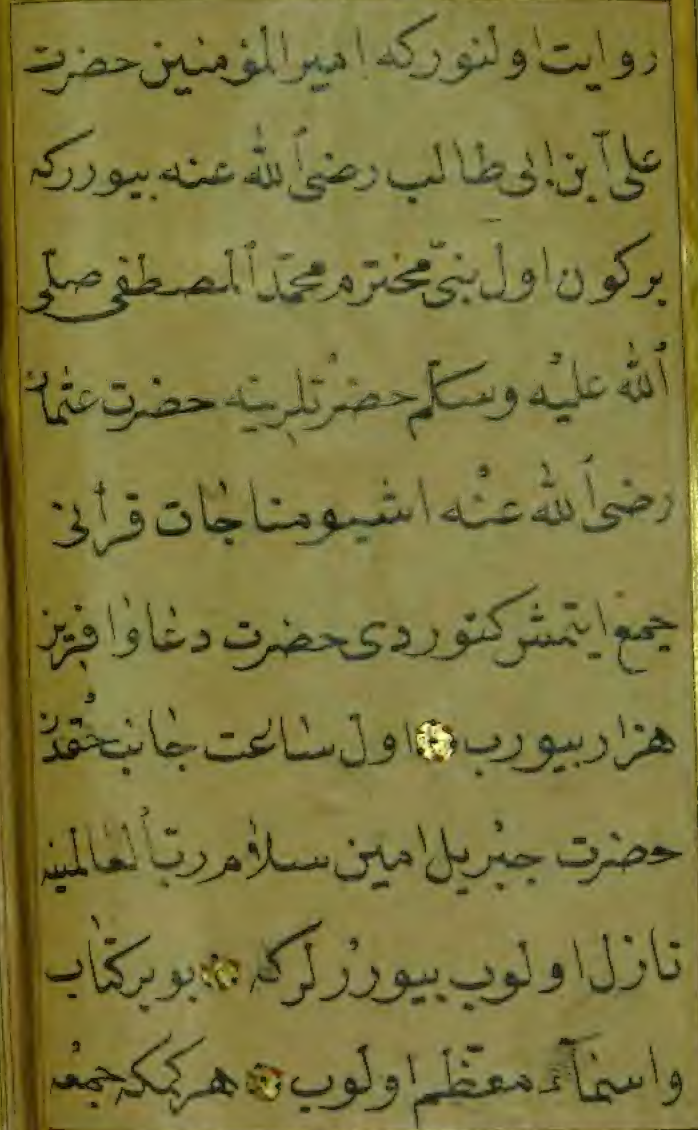 روایت اولنور که امیر المؤمنین حضرت
علی ابن ابی طالب رضی الله عنه بیوررکه
برکون اول نبیّ محترم محمّد المصطفی صلی
الله علیه وسلّم حضرتلرینه حضرت عثمان
رضی الله عنه اشبو مناجات قرأنی
جمع ایتمش کتوردی حضرت دعا وافرین
هزار بیورب اول ساعت جانب حقدن
حضرت جبریل امین سلام ربّ العالمینه
نازل اولوب بیوررلرکه بو بر کتاب
واسماء معظّم اولوب هر کمکه جمعه